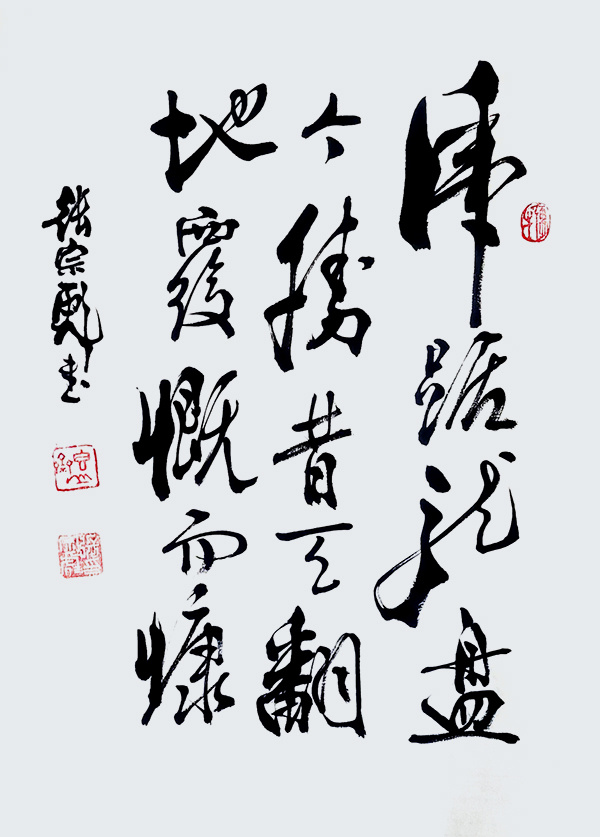 虎踞龙盘
今勝昔天翻
地覆慨而慷
宗书